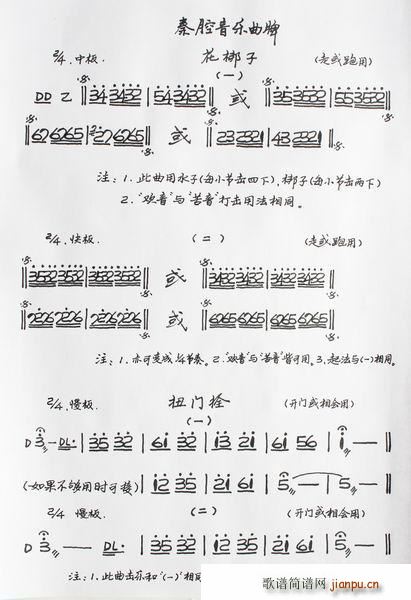 秦腔音乐曲牌
2/4. 中板. 花梆子 (走或跑用)
(一)
DD 乙 ‖34 3432 | 54 3432‖ 或 ‖35 3532 | 55 3532‖
‖62 6265 | 22 6265‖ 或 ‖23 2321 | 43 2321‖
注:1. 此曲用水子(每小节击四下),梆子(每小节击两下)
2. "欢音"与"苦音"打击用法相同。
2/4. 快板. (二) (走或跑用)
‖3532 3532 | 3532 3532‖ 或 ‖3432 3432 | 3432 3432‖
‖2226 2226 | 2226 2226‖ 或 ‖6265 6265 | 6265 6265‖
注:1. 亦可变成 1/4节奏。2. "欢音"与"苦音"皆可用。3. 起法与(一)相同。
2/4. 慢板. 扭门栓 (开门或相会用)
(一)
D 3 — DL· | 35 32 | 61 32 | 13 21 | 61 56 | 1 — |
(如果不够用时可接) | 12 35 | 21 61 | 5 — | 5 — |
2/4 慢板 (二) (开门或相会用)
D 3 — DL· | 35 32 | 12 35 | 21 61 | 5 — |
注:1. 此曲击乐和"(一)"相同
歌谱简谱网
jianpu.cn